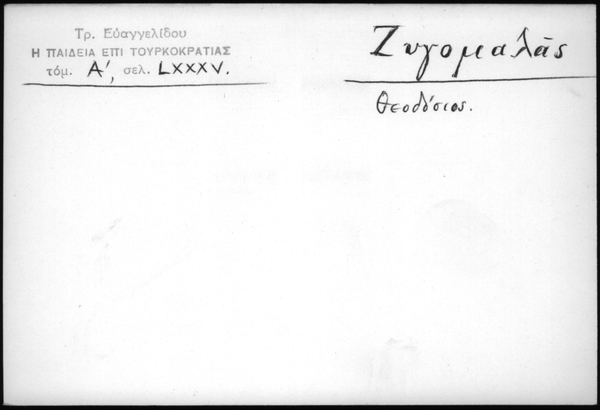 Τρ. Εὐαγγελίδου
Η ΠΑΙΔΕΙΑ ΕΠΙ ΤΟΥΡΚΟΚΡΑΤΙΑΣ
τόμ. Α', σελ. LXXXV.
Ζυγομαλᾶς
Θεοδόσιος.